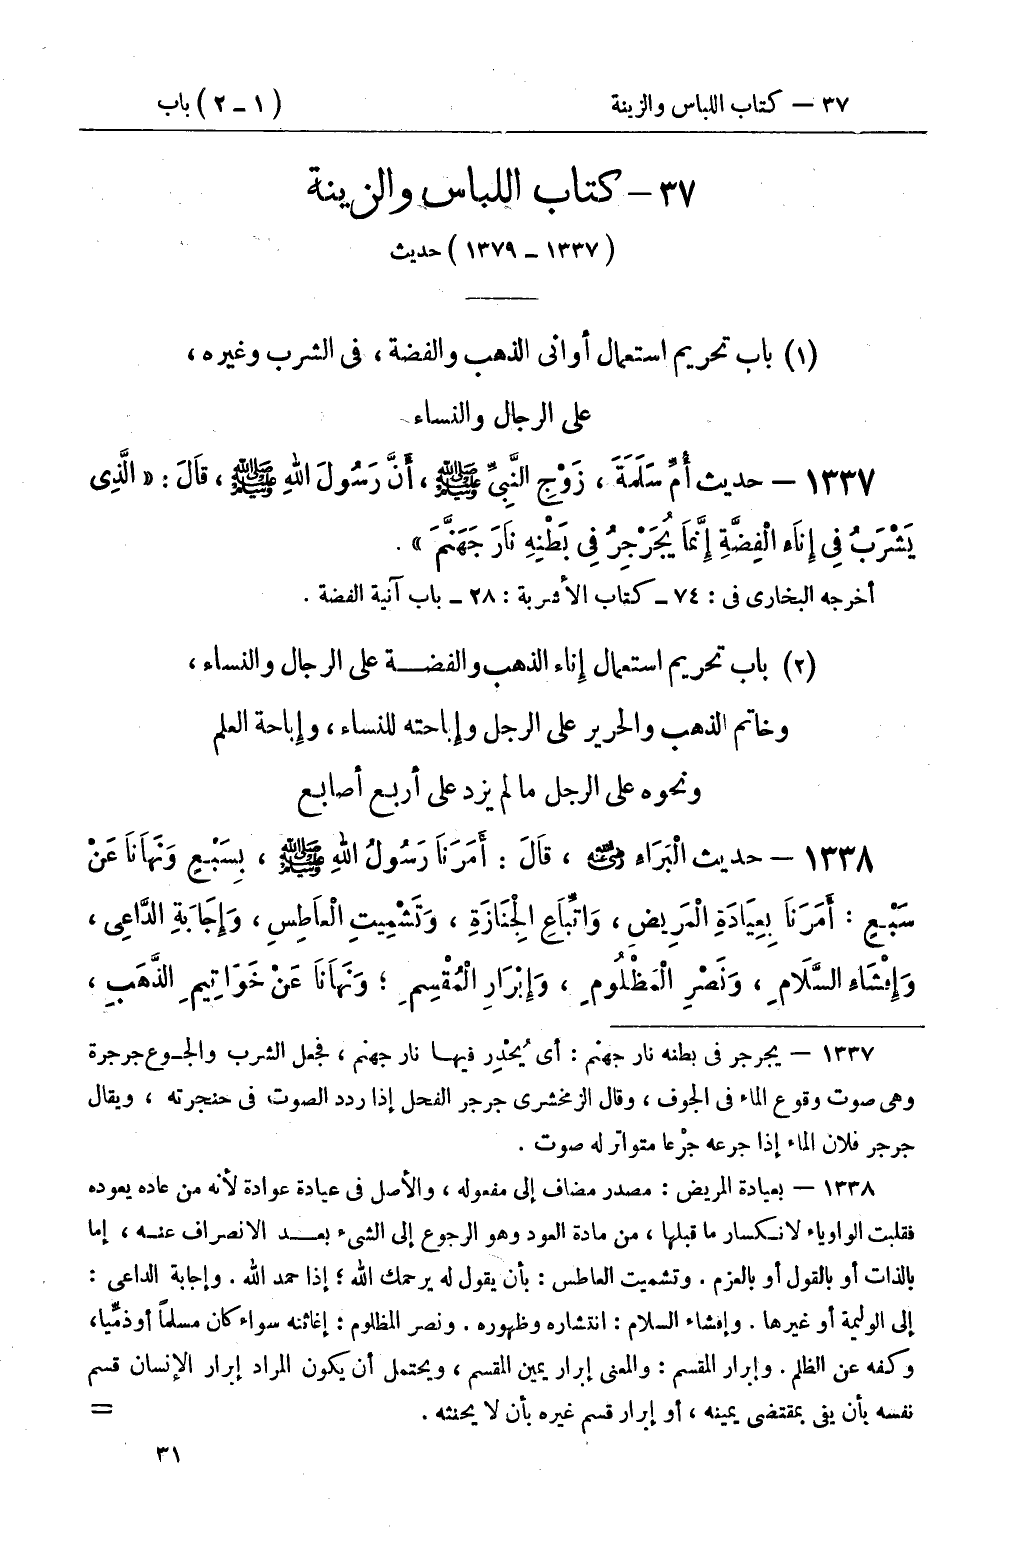 ٣٧ – كتاب اللباس والزينة (١ – ٢) باب
٣٧ – كتاب اللباس والزينة
(١٣٣٧ – ١٣٧٩) حديث
(١) باب تحريم استعمال أوانى الذهب والفضة ، فى الشرب وغيره ،
على الرجال والنساء
١٣٣٧ – حديث أُمِّ سَلَمَةَ ، زَوْجِ النَّبِيِّ ﷺ ، أَنَّ رَسُولَ اللهِ ﷺ ، قَالَ : « الَّذِى
يَشْرَبُ فِى إِنَاءِ الْفِضَّةِ إِنَّمَا يُجَرْجِرُ فِى بَطْنِهِ نَارَ جَهَنَّمَ » .
أخرجه البخارى فى : ٧٤ ـ كتاب الأشربة : ٢٨ ـ باب آنية الفضة .
(٢) باب تحريم استعمال إناء الذهب والفضـــة على الرجال والنساء ،
وخاتم الذهب والحرير على الرجل وإباحته للنساء ، وإباحة العلم
ونحوه على الرجل ما لم يزد على أربع أصابع
١٣٣٨ – حديث الْبَرَاءِ رضي الله عنه ، قَالَ : أَمَرَنَا رَسُولُ اللهِ ﷺ ، بِسَبْعٍ وَنَهَانَا عَنْ
سَبْعٍ : أَمَرَنَا بِعِيَادَةِ الْمَرِيضِ ، وَاتِّبَاعِ الْجِنَازَةِ ، وَتَشْمِيتِ الْعَاطِسِ ، وَإِجَابَةِ الدَّاعِى ،
وَإِفْشَاءِ السَّلَامِ ، وَنَصْرِ الْمَظْلُومِ ، وَإِبْرَارِ الْمُقْسِمِ ؛ وَنَهَانَا عَنْ خَوَاتِيمِ الذَّهَبِ ،
١٣٣٧ – يجرجر فى بطنه نار جهنم : أى يُحْدِر فيهـا نار جهنم ، فجعل الشرب والجـوع جرجرة
وهى صوت وقوع الماء فى الجوف ، وقال الزمخشرى جرجر الفحل إذا ردد الصوت فى حنجرته ، ويقال
جرجر فلان الماء إذا جرعه جرْعا متواتر له صوت .
١٣٣٨ – بعيادة المريض : مصدر مضاف إلى مفعوله ، والأصل فى عيادة عوادة لأنه من عاده يعوده
فقلبت الواو ياء لانـكسار ما قبلها ، من مادة العود وهو الرجوع إلى الشىء بعـــد الانصراف عنـه ، إما
بالذات أو بالقول أو بالعزم . وتشميت العاطس : بأن يقول له يرحمك الله ؛ إذا حمد الله . وإجابة الداعى :
إلى الوليمة أو غيرها . وإفشاء السلام : انتشاره وظهوره . ونصر المظلوم : إغاثته سواء كان مسلماً أو ذمّيا ،
وكفه عن الظلم . وإبرار المقسم : والمعنى إبرار يمين المقسم ، ويحتمل أن يكون المراد إبرار الإنسان قسم
نفسه بأن يفى بمقتضى يمينه ، أو إبرار قسم غيره بأن لا يحنثه . =
٣١